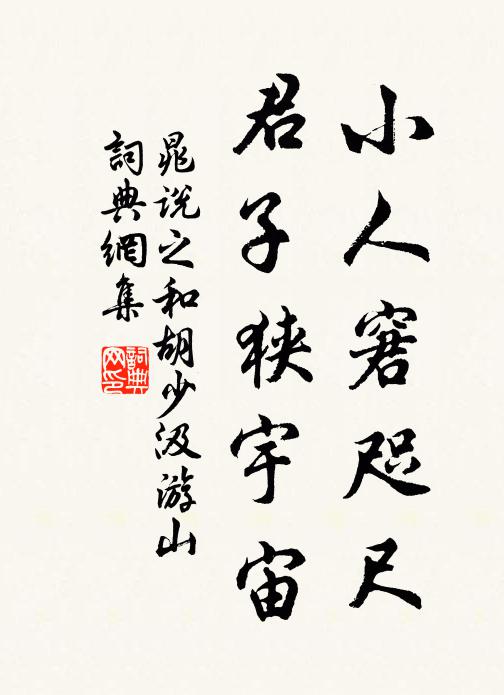 小人窘咫尺
君子狹宇宙
晁說之和胡少汲游山
詞典網集
詞典网印